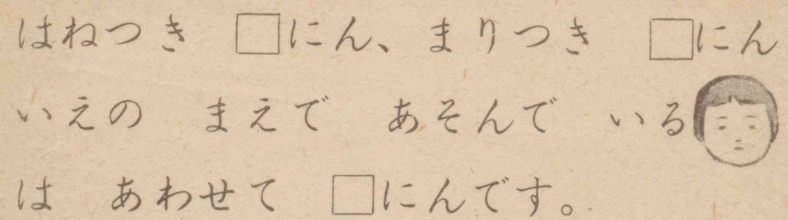 はねつき □にん、まりつき □にん
いえの まえで あそんで いる
は あわせて □にんです。